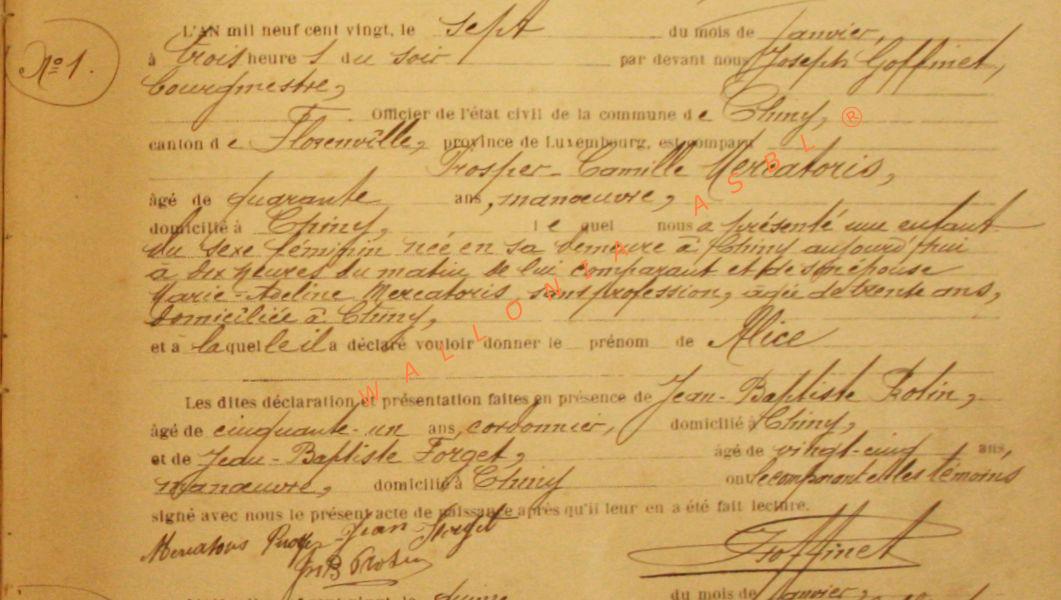 N° 1.
L'AN mil neuf cent vingt, le sept du mois de janvier,
à trois heures du soir par devant nous Joseph Goffinet,
bourgmestre,
Officier de l'état civil de la commune de Chiny,
canton de Florenville, province de Luxembourg, est comparu
Prosper-Camille Mercatoris,
âgé de quarante ans, manœuvre,
domicilié à Chiny, lequel nous a présenté une enfant
du sexe féminin née en sa demeure à Chiny aujourd'hui
à dix heures du matin de lui comparant et de son épouse
Marie-Adeline Mercatoris, sans profession, âgée de trente ans,
domiciliée à Chiny,
et à laquelle il a déclaré vouloir donner le prénom de Alice
Les dites déclaration et présentation faites en présence de Jean-Baptiste Protin,
âgé de cinquante-un ans, cordonnier, domicilié à Chiny,
et de Jean-Baptiste Forget, âgé de vingt-cinq ans,
manœuvre, domicilié à Chiny ont le comparant et les témoins
signé avec nous le présent acte de naissance après qu'il leur en a été fait lecture.
Mercatoris Jean Forget
Protin Goffinet
du mois de janvier,
WALLONIA ASBL ®